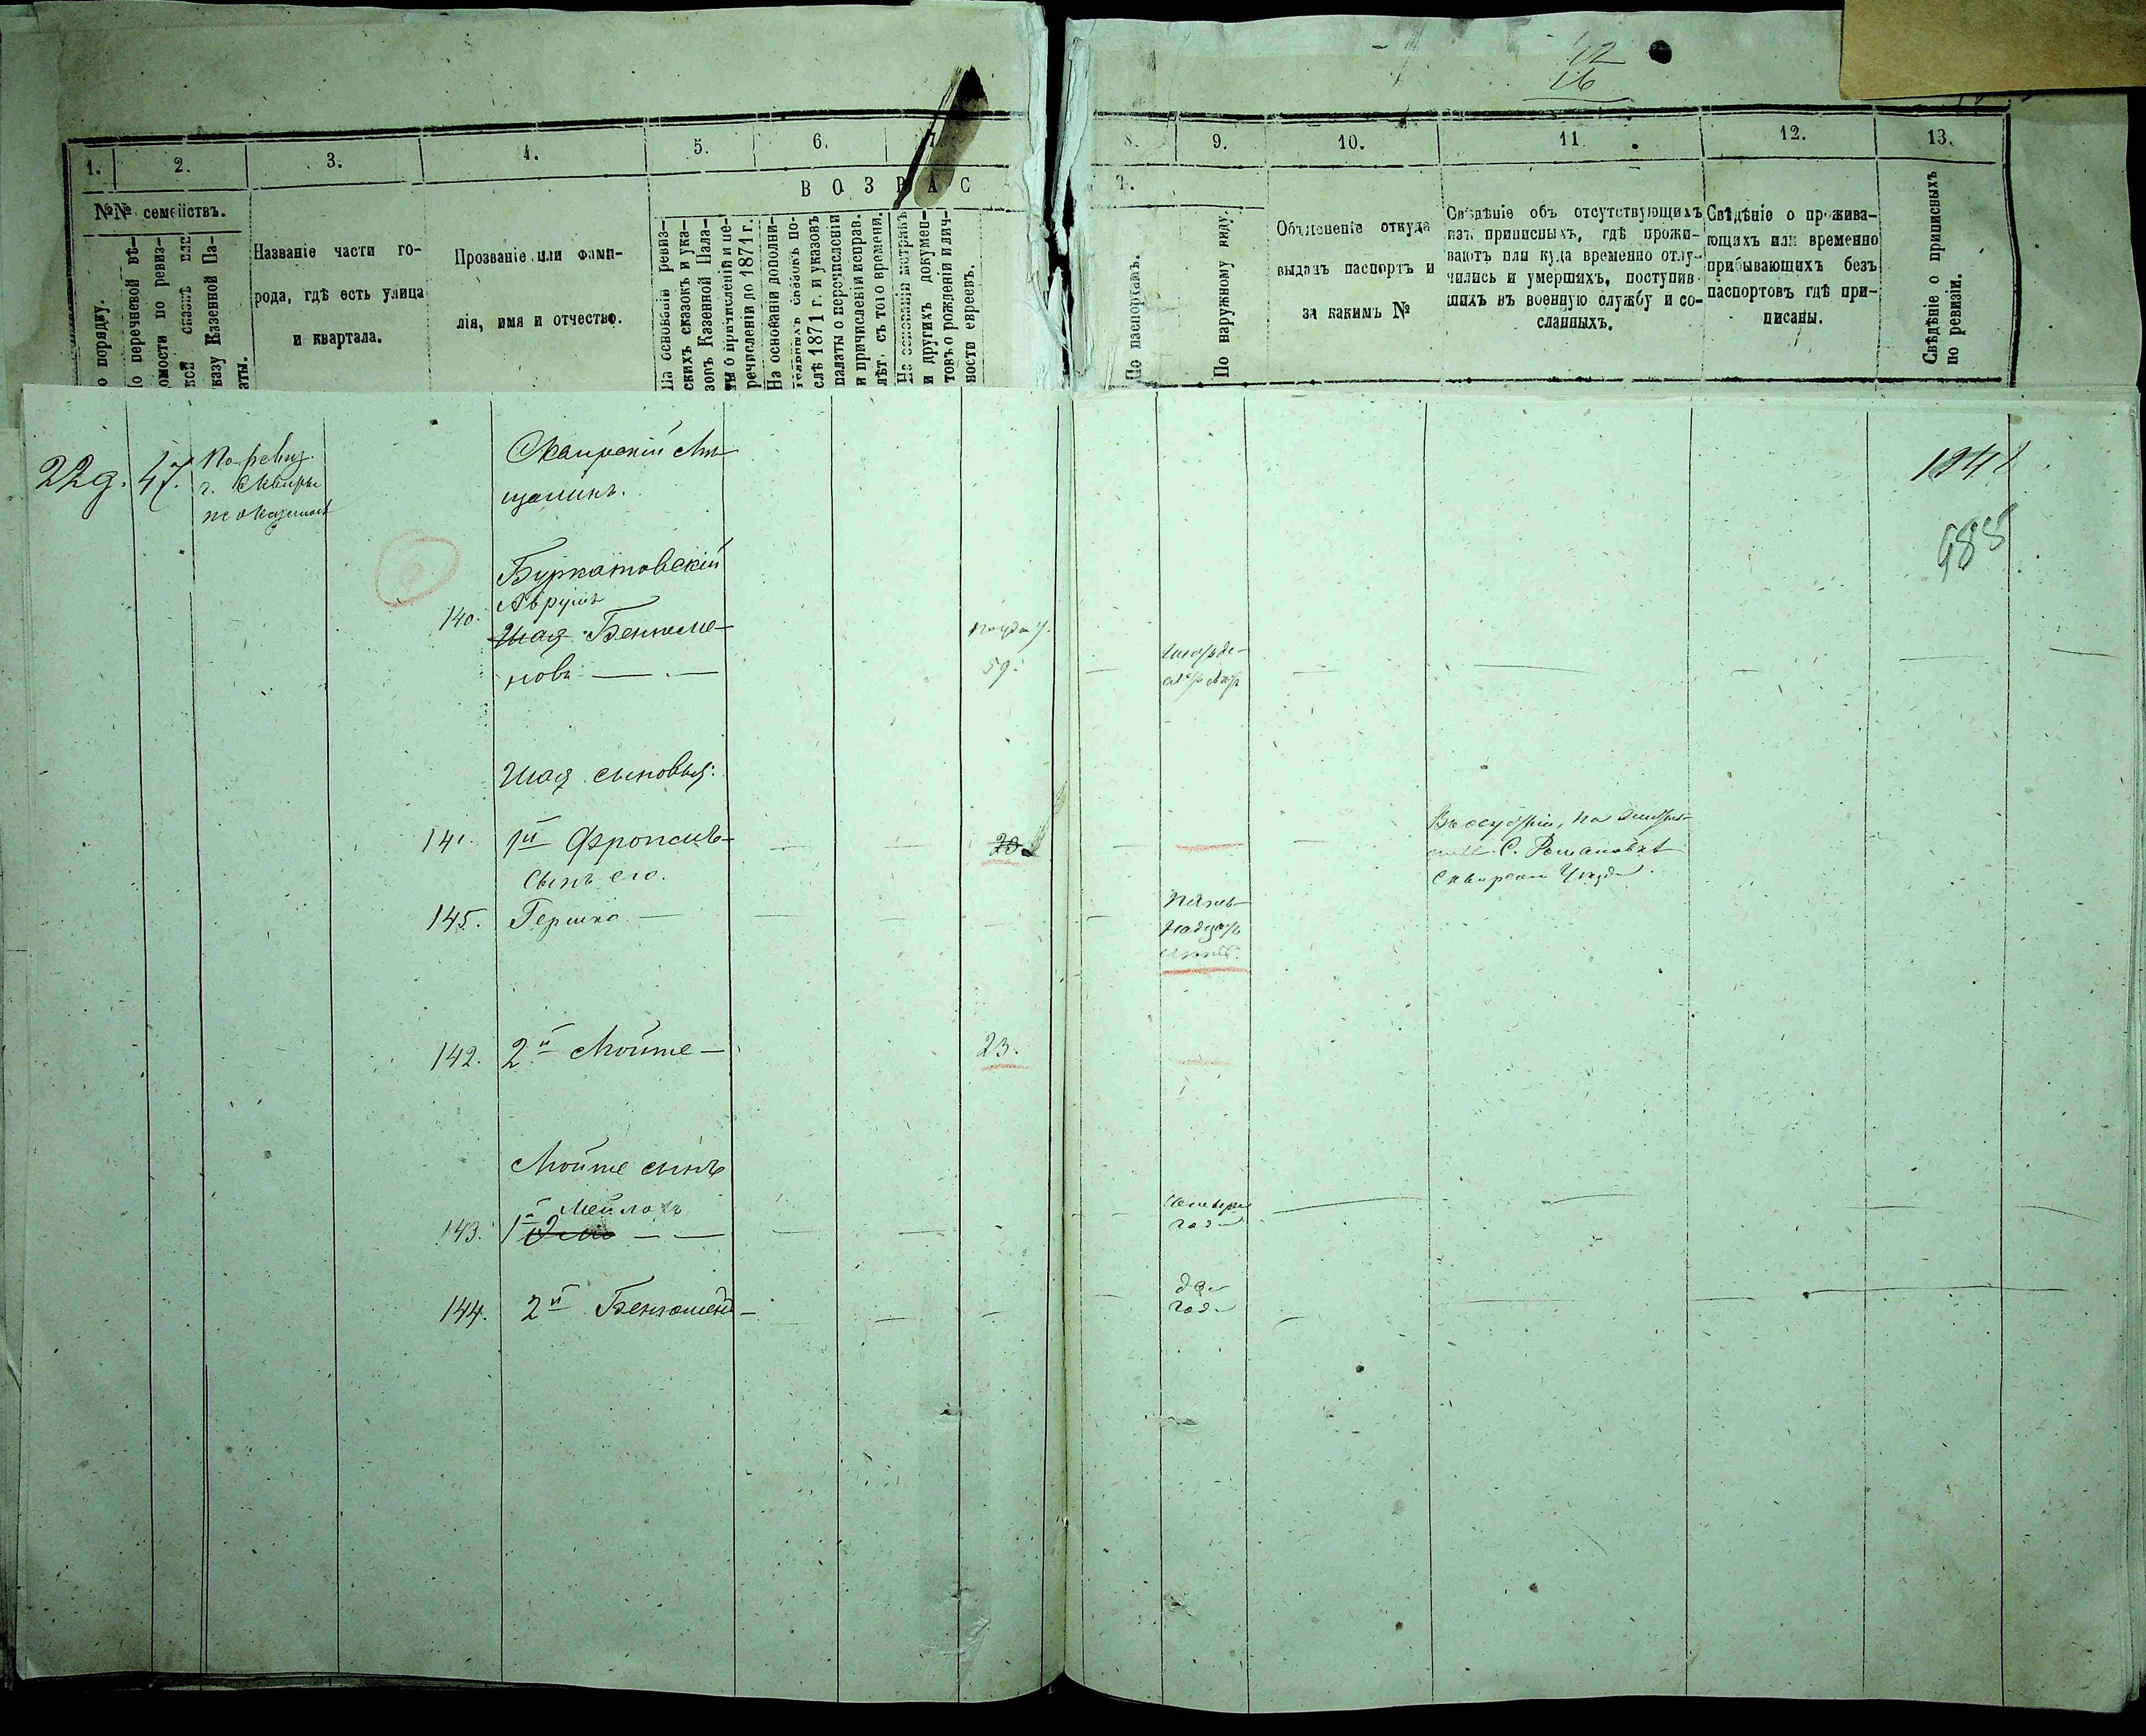 12
16
1.
2.
3.
4.
5.
6.
7.
ВОЗРАС
№№ семействъ.
о порядку.
о перечневой вѣ-
омости по ревиз-
кой сказкѣ или
казу Казенной Па-
аты.
Названіе части го-
рода, гдѣ есть улица
и квартала.
Прозваніе или фами-
лія, имя и отчество.
На основаніи ревиз-
скихъ сказокъ и ука-
зовъ Казенной Пала-
ты о причисленіи и пе-
речисленіи до 1871 г.
На основаніи дополни-
тельныхъ сказокъ по-
слѣ 1871 г. и указовъ
палаты о перечисленіи
и причисленіи исправ.
лѣт. съ того времени.
На основаніи метрикъ
и другихъ докумен-
товъ о рожденіи и лич-
ности евреевъ.
8.
9.
10.
11.
12.
13.
Т.
По паспортамъ.
По наружному виду.
Объясненіе откуда
выданъ паспортъ и
за какимъ №
Свѣдѣніе объ отсутствующихъ
изъ приписныхъ, гдѣ прожи-
ваютъ или куда временно отлу-
чились и умершихъ, поступив-
шихъ въ военную службу и со-
сланныхъ.
Свѣдѣніе о прожива-
ющихъ или временно
прибывающихъ безъ
паспортовъ гдѣ при-
писаны.
Свѣдѣніе о приписныхъ
по ревизіи.
229. 47.
По ревиз.
г. Сквиры
не оказался
Сквирскій Мѣ-
щанинъ.
Буркатовскій
Аврумъ
140. Шая Беньеме-
новъ
59.
988
Шая сыновья:
141. 1й Фроимъ
20
С. Романовкѣ
Сквирскаго Уѣзда.
сынъ его.
145. Гершко
пять
надцать
лѣтъ.
142. 2й Мойше
23.
Мойше сынъ
Мейлахъ
143. 1й
четыре
года
144. 2й Беньоменъ
два
года